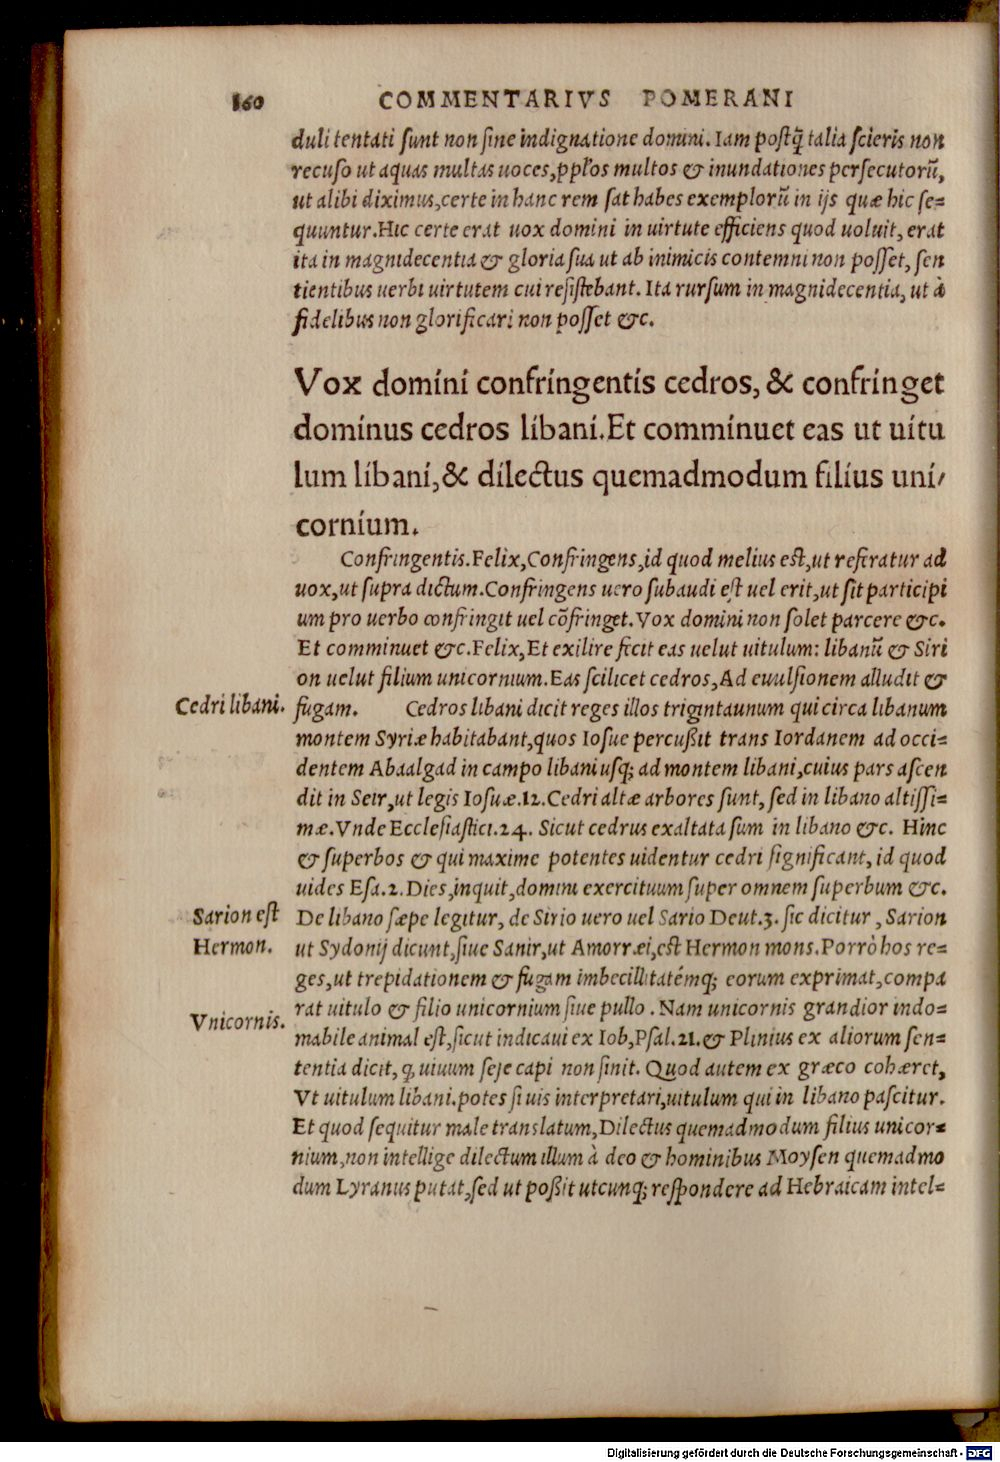 160 COMMENTARIVS POMERANI
duli tentati sunt non sine indignatione domini. Iam postq̃ talia scieris non
recuso ut aquas multas uoces, ppl'os multos & inundationes persecutorũ,
ut alibi diximus, certe in hanc rem sat habes exemplorũ in ijs quæ hic se=
quuntur. Hic certe erat uox domini in uirtute efficiens quod uoluit, erat
ita in magnidecentia & gloria sua ut ab inimicis contemni non posset, sen
tientibus uerbi uirtutem cui resistebant. Ita rursum in magnidecentia, ut à
fidelibus non glorificari non posset &c.
Vox domini confringentis cedros, & confringet
dominus cedros libani. Et comminuet eas ut uitu
lum libani, & dilectus quemadmodum filius uni/
cornium.
Confringentis. Felix, Confringens, id quod melius est, ut referatur ad
uox, ut supra dictum. Confringens uero subaudi est uel erit, ut sit participi
um pro uerbo confringit uel cõfringet. Vox domini non solet parcere &c.
Et comminuet &c. Felix, Et exilire fecit eas uelut uitulum: libanũ & Siri
on uelut filium unicornium. Eas scilicet cedros, Ad euulsionem alludit &
Cedri libani. fugam. Cedros libani dicit reges illos trigintaunum qui circa libanum
montem Syriæ habitabant, quos Iosue percußit trans Iordanem ad occi=
dentem Abaalgad in campo libani usq; ad montem libani, cuius pars ascen
dit in Seir, ut legis Iosuæ. 12. Cedri altæ arbores sunt, sed in libano altissi=
mæ. Vnde Ecclesiastici. 24. Sicut cedrus exaltata sum in libano &c. Hinc
& superbos & qui maxime potentes uidentur cedri significant, id quod
uides Esa. 2. Dies, inquit, domini exercituum super omnem superbum &c.
Sarion est De libano sæpe legitur, de Sirio uero uel Sario Deut. 3. sic dicitur, Sarion
Hermon. ut Sydonij dicunt, siue Sanir, ut Amorræi, est Hermon mons. Porrò hos re=
ges, ut trepidationem & fugam imbecillitatémq; eorum exprimat, compa
rat uitulo & filio unicornium siue pullo. Nam unicornis grandior indo=
Vnicornis. mabile animal est, sicut indicaui ex Iob, Psal. 21. & Plinius ex aliorum sen=
tentia dicit, q, uiuum sese capi non sinit. Quod autem ex græco cohæret,
Vt uitulum libani. potes si uis interpretari, uitulum qui in libano pascitur.
Et quod sequitur male translatum, Dilectus quemadmodum filius unicor=
nium, non intellige dilectum illum à deo & hominibus Moysen quemadmo
dum Lyranus putat, sed ut poßit utcunq; respondere ad Hebraicam intel=
Digitalisierung gefördert durch die Deutsche Forschungsgemeinschaft - DFG